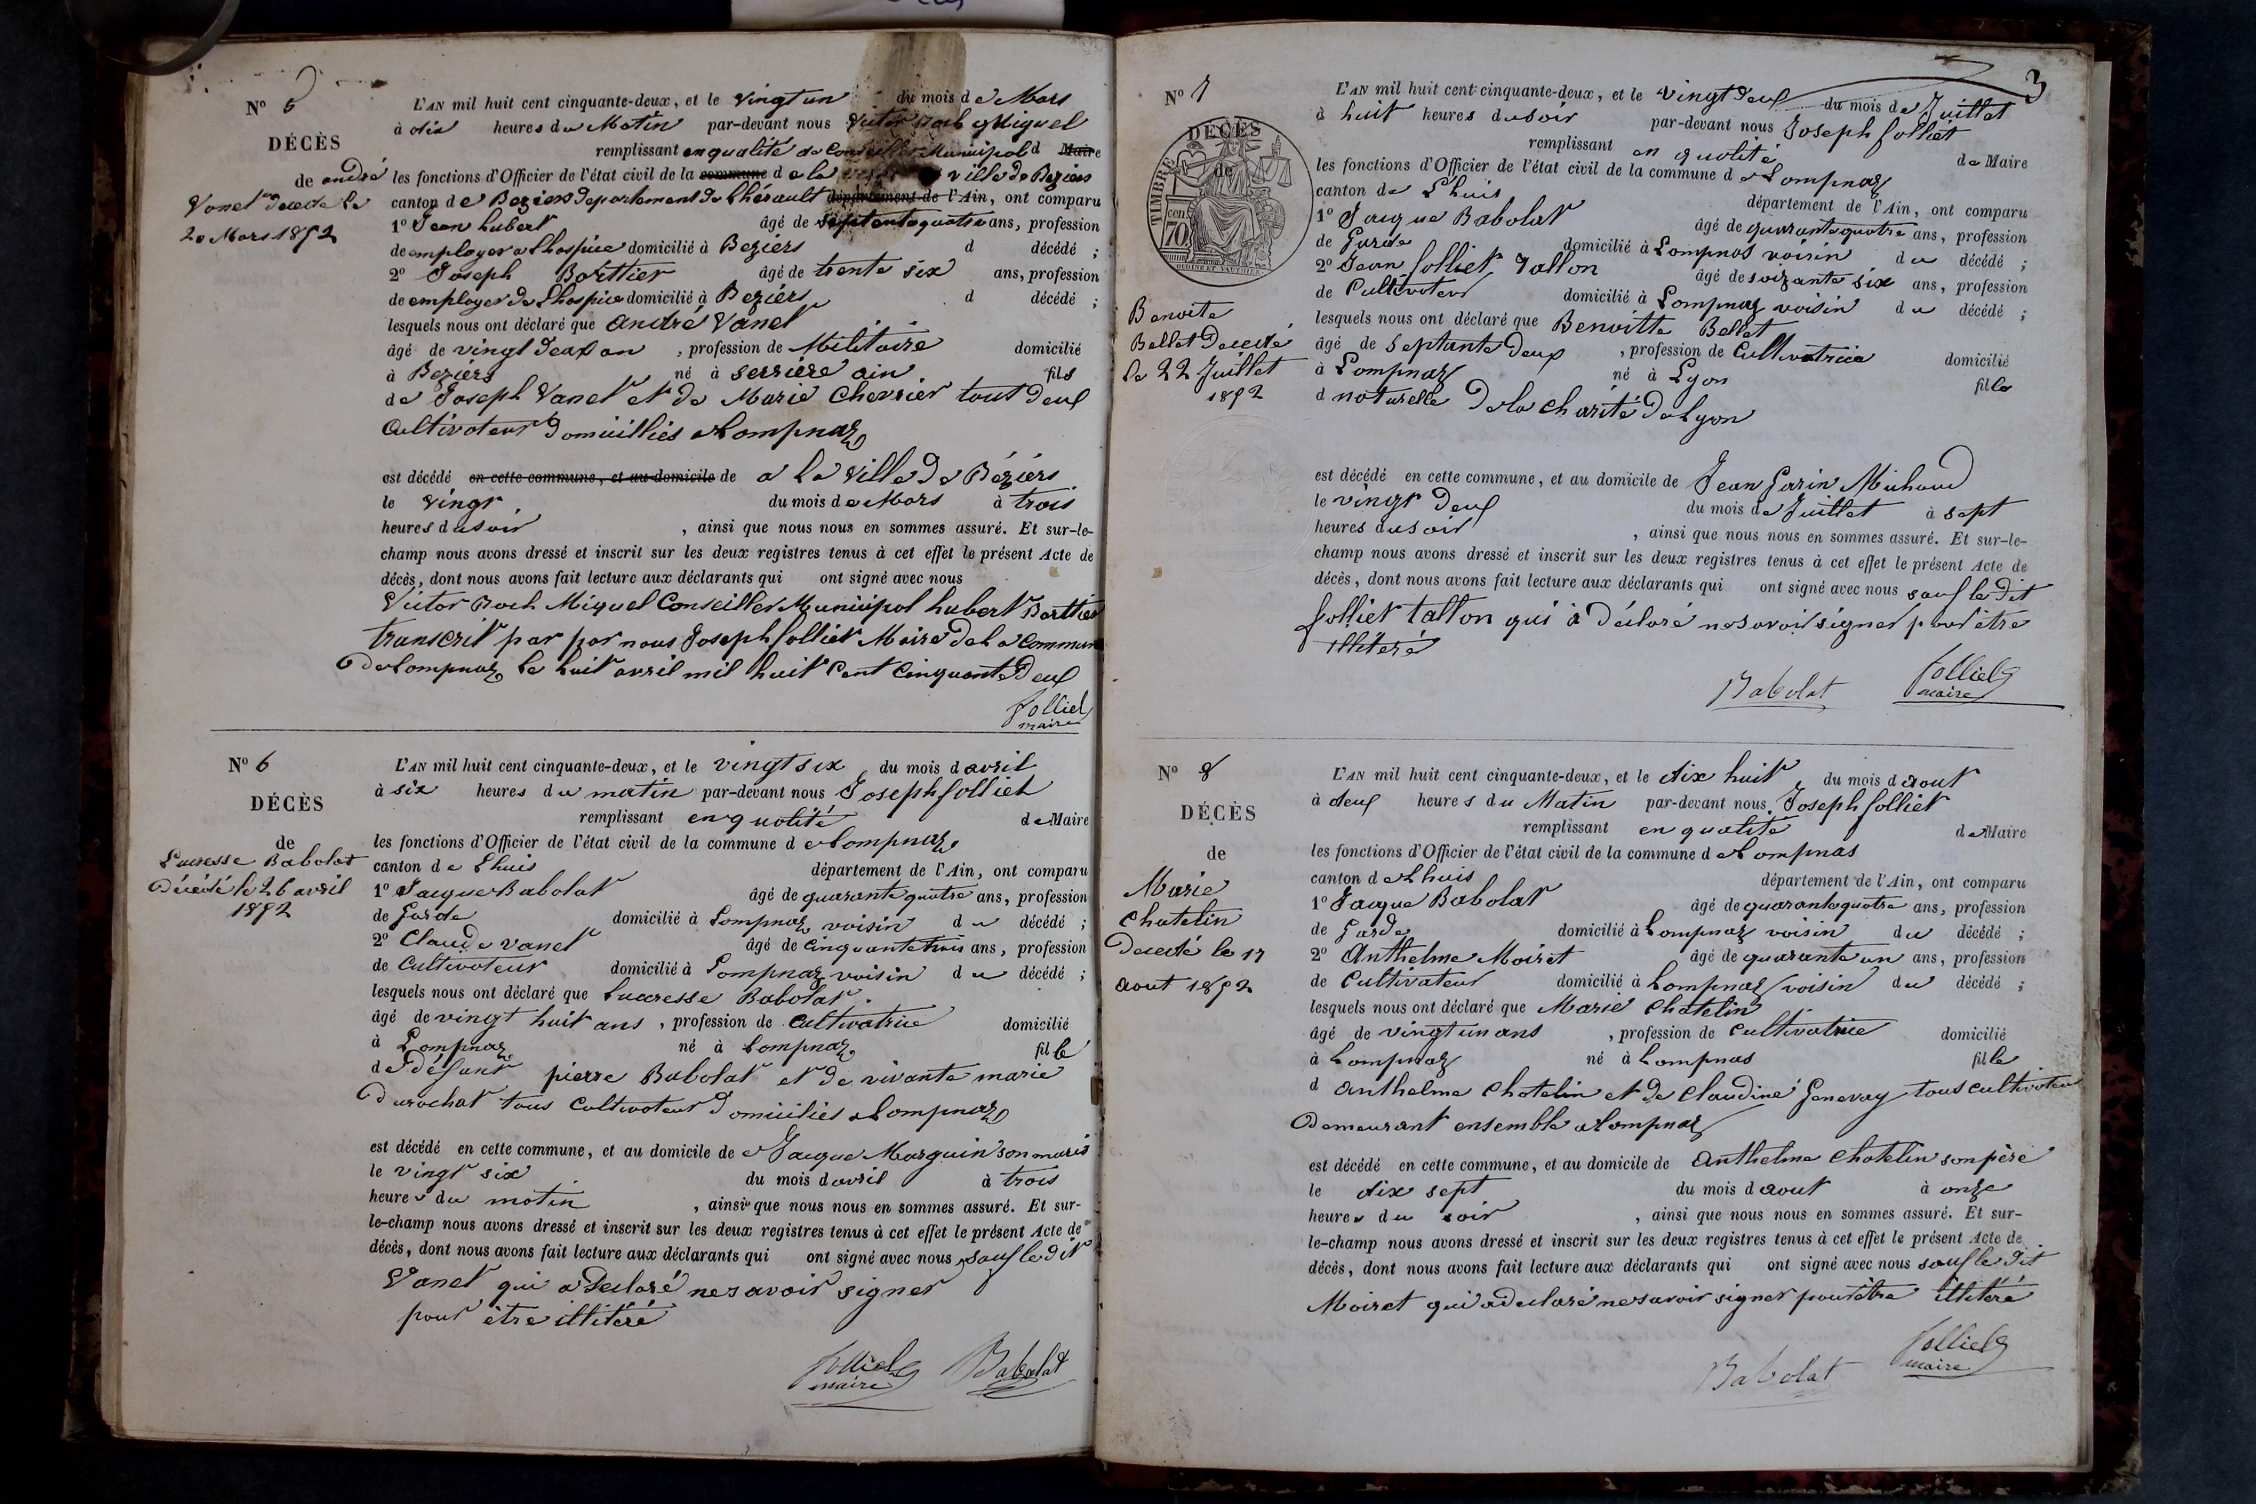 N° 5
DÉCÈS
de andré
Vanet décédé le
20 Mars 1852
L'AN mil huit cent cinquante-deux, et le vingt un du mois de Mars
à dix heures du Matin par-devant nous Victor Roch Miquel
remplissant en qualité de Conseiller Municipal d Maire
les fonctions d'Officier de l'état civil de la commune de la ville de Beziers
canton de Beziers departement de Lhérault département de l'Ain, ont comparu
1° Jean hubert âgé de septente quatre ans, profession
de employer a Lhospice domicilié à Beziers d décédé ;
2° Joseph Barttier âgé de trente six ans, profession
de employer de Lhospice domicilié à Beziérs d décédé ;
lesquels nous ont déclaré que andré Vanet
âgé de vingt deux an, profession de Militaire domicilié
à Beziers né à serriére ain fils
de Joseph Vanet et de Marie Chevrier tout deux
Cultivateur Domicilliés a Lompnaz
est décédé en cette commune, et au domicile de a La Ville De Béziérs
le vingt du mois de Mars à trois
heures du soir, ainsi que nous nous en sommes assuré. Et sur-le-
champ nous avons dressé et inscrit sur les deux registres tenus à cet effet le présent Acte de
décès, dont nous avons fait lecture aux déclarants qui ont signé avec nous
Victor Roch Miquel Conseiller Municipal hubert Barttier
transcrit par par nous Joseph folliet Maire De La Commune
De Lompnaz Le huit avril mil huit Cent Cinquante Deux
folliet
maire
N° 6
DÉCÈS
de
Lucresse Babolat
Décédé le 26 avril
1852
L'AN mil huit cent cinquante-deux, et le vingt six du mois d avril
à six heures du matin par-devant nous Joseph folliet
remplissant en qualité de Maire
les fonctions d'Officier de l'état civil de la commune de Lompnaz
canton de Lhuis département de l'Ain, ont comparu
1° Jacque Babolat âgé de quarante quatre ans, profession
de Garde domicilié à Lompnaz voisin du décédé ;
2° Claude vanet âgé de Cinquante trois ans, profession
de Cultivateur domicilié à Lompnaz voisin du décédé ;
lesquels nous ont déclaré que Lucresse Babolat
âgé de vingt huit ans, profession de Cultivatrice domicilié
à Lompnaz né à Lompnaz fille
de Défunt pierre Babolat et de vivante marie
Durochat tous Cultivateur Domiciliés a Lompnaz
est décédé en cette commune, et au domicile de Jacque Marguin son maris
le vingt six du mois d avril à trois
heures du matin, ainsi que nous nous en sommes assuré. Et sur-
le-champ nous avons dressé et inscrit sur les deux registres tenus à cet effet le présent Acte de
décès, dont nous avons fait lecture aux déclarants qui ont signé avec nous sauf le dit
Vanet qui a Declaré ne savoir signer
pour être illitéré
folliet
maire
Babolat
3
N° 7
DÉCÈS
de
TIMBRE
cen
70
Benoite
Bellet Decedé
Le 22 Juillet
1852
L'AN mil huit cent cinquante-deux, et le vingt Deux du mois de Juillet
à huit heures du soir par-devant nous Joseph folliet
remplissant en qualité de Maire
les fonctions d'Officier de l'état civil de la commune de Lompnaz
canton de Lhuis département de l'Ain, ont comparu
1° Jacque Babolat âgé de quarante quatre ans, profession
de Garde domicilié à Lompnas voisin du décédé ;
2° Jean folliet Tallon âgé de soixante six ans, profession
de Cultivateur domicilié à Lompnaz voisin du décédé ;
lesquels nous ont déclaré que Benoitte Bellet
âgé de septante Deux, profession de Cultivatrice domicilié
à Lompnaz né à Lyon fille
d naturelle De la charité De Lyon
est décédé en cette commune, et au domicile de Jean Garin Michaud
le vingt Deux du mois de Juillet à sept
heures du soir, ainsi que nous nous en sommes assuré. Et sur-le-
champ nous avons dressé et inscrit sur les deux registres tenus à cet effet le présent Acte de
décès, dont nous avons fait lecture aux déclarants qui ont signé avec nous sauf le dit
folliet tallon qui à Déclaré ne savoir signer pour être
illitéré
Babolat
folliet
maire
N° 8
DÉCÈS
de
Marie
Chatelin
Decedé le 17
aout 1852
L'AN mil huit cent cinquante-deux, et le dix huit du mois d aout
à deux heures du Matin par-devant nous Joseph folliet
remplissant en qualité de Maire
les fonctions d'Officier de l'état civil de la commune de Lompnas
canton de Lhuis département de l'Ain, ont comparu
1° Jacque Babolat âgé de quarante quatre ans, profession
de Garde domicilié à Lompnaz voisin du décédé ;
2° Anthelme Moiret âgé de quarante un ans, profession
de Cultivateur domicilié à Lompnaz voisin du décédé ;
lesquels nous ont déclaré que Marie Chatelin
âgé de vingt un ans, profession de Cultivatrice domicilié
à Lompnaz né à Lompnas fille
d anthelme Chatelin et de Claudine Genevay tous cultivateur
Demeurant ensemble a Lompnaz
est décédé en cette commune, et au domicile de anthelme Chatelin son père
le dix sept du mois d aout à onze
heures du soir, ainsi que nous nous en sommes assuré. Et sur-
le-champ nous avons dressé et inscrit sur les deux registres tenus à cet effet le présent Acte de
décès, dont nous avons fait lecture aux déclarants qui ont signé avec nous sauf le dit
Moiret qui a declaré ne savoir signer pour être illitéré
Babolat
folliet
maire